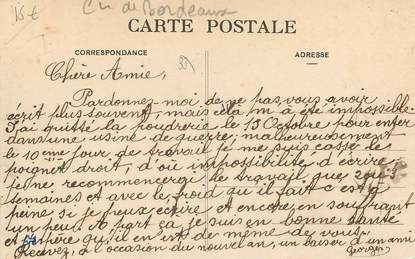 15 €
Cn de Bordeaux
CARTE POSTALE
CORRESPONDANCE
ADRESSE
Chère Amie,
Pardonnez-moi de ne pas vous avoir
écrit plus souvent, mais cela m'a été impossible.
J'ai quitté la poudrerie le 13 Octobre pour entrer
dans une usine de guerre; malheureusement
le 10ème jour de travail je me suis cassé le
poignet droit, d'où impossibilité d'écrire
je ne recommencerai le travail que
semaines et avec le froid qu'il fait c'est à
peine si je peux écrire et encore en souffrant
un peu. A part ça je suis en bonne santé
et espère qu'il en est de même de vous.
Recevez, à l'occasion du nouvel an, un baiser d'un ami
Georges